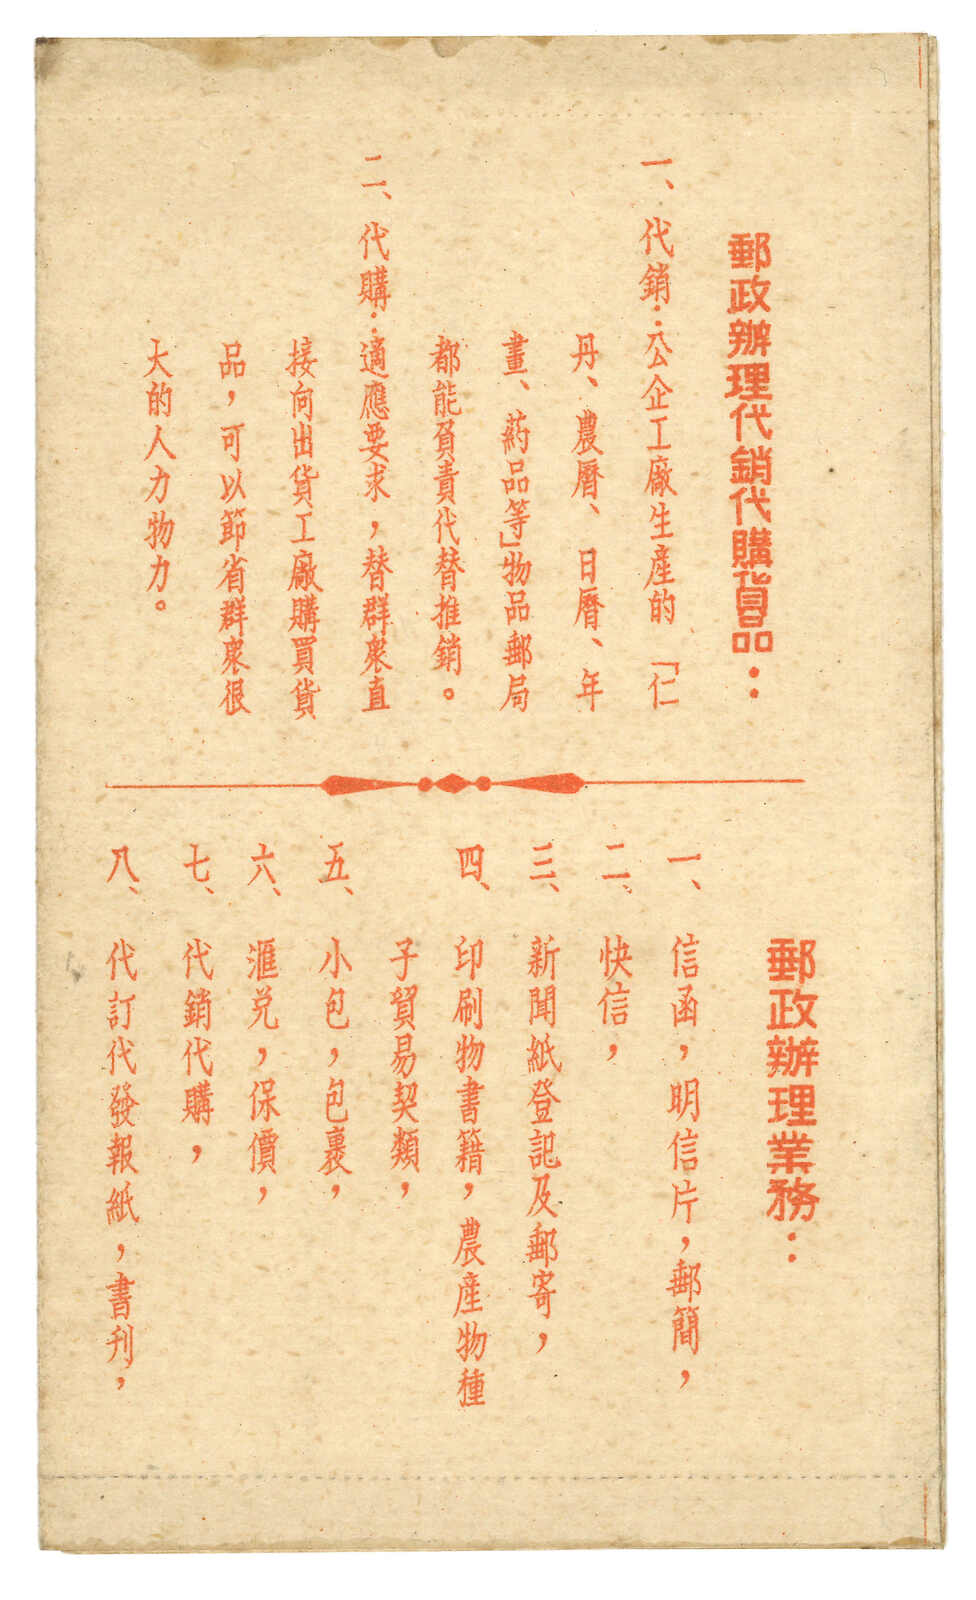 郵政辦理代銷代購貨品：
一、代銷：公企工廠生產的「仁
丹、農曆、日曆、年
畫、葯品等」物品郵局
都能負責代替推銷。
二、代購：適應要求，替群衆直
接向出貨工廠購買貨
品，可以節省群衆很
大的人力物力。
郵政辦理業務：
一、信函，明信片，郵簡，
二、快信，
三、新聞紙登記及郵寄，
四、印刷物書籍，農產物種
子貿易契類，
五、小包，包裹，
六、滙兑，保價，
七、代銷代購，
八、代訂代發報紙，書刊，